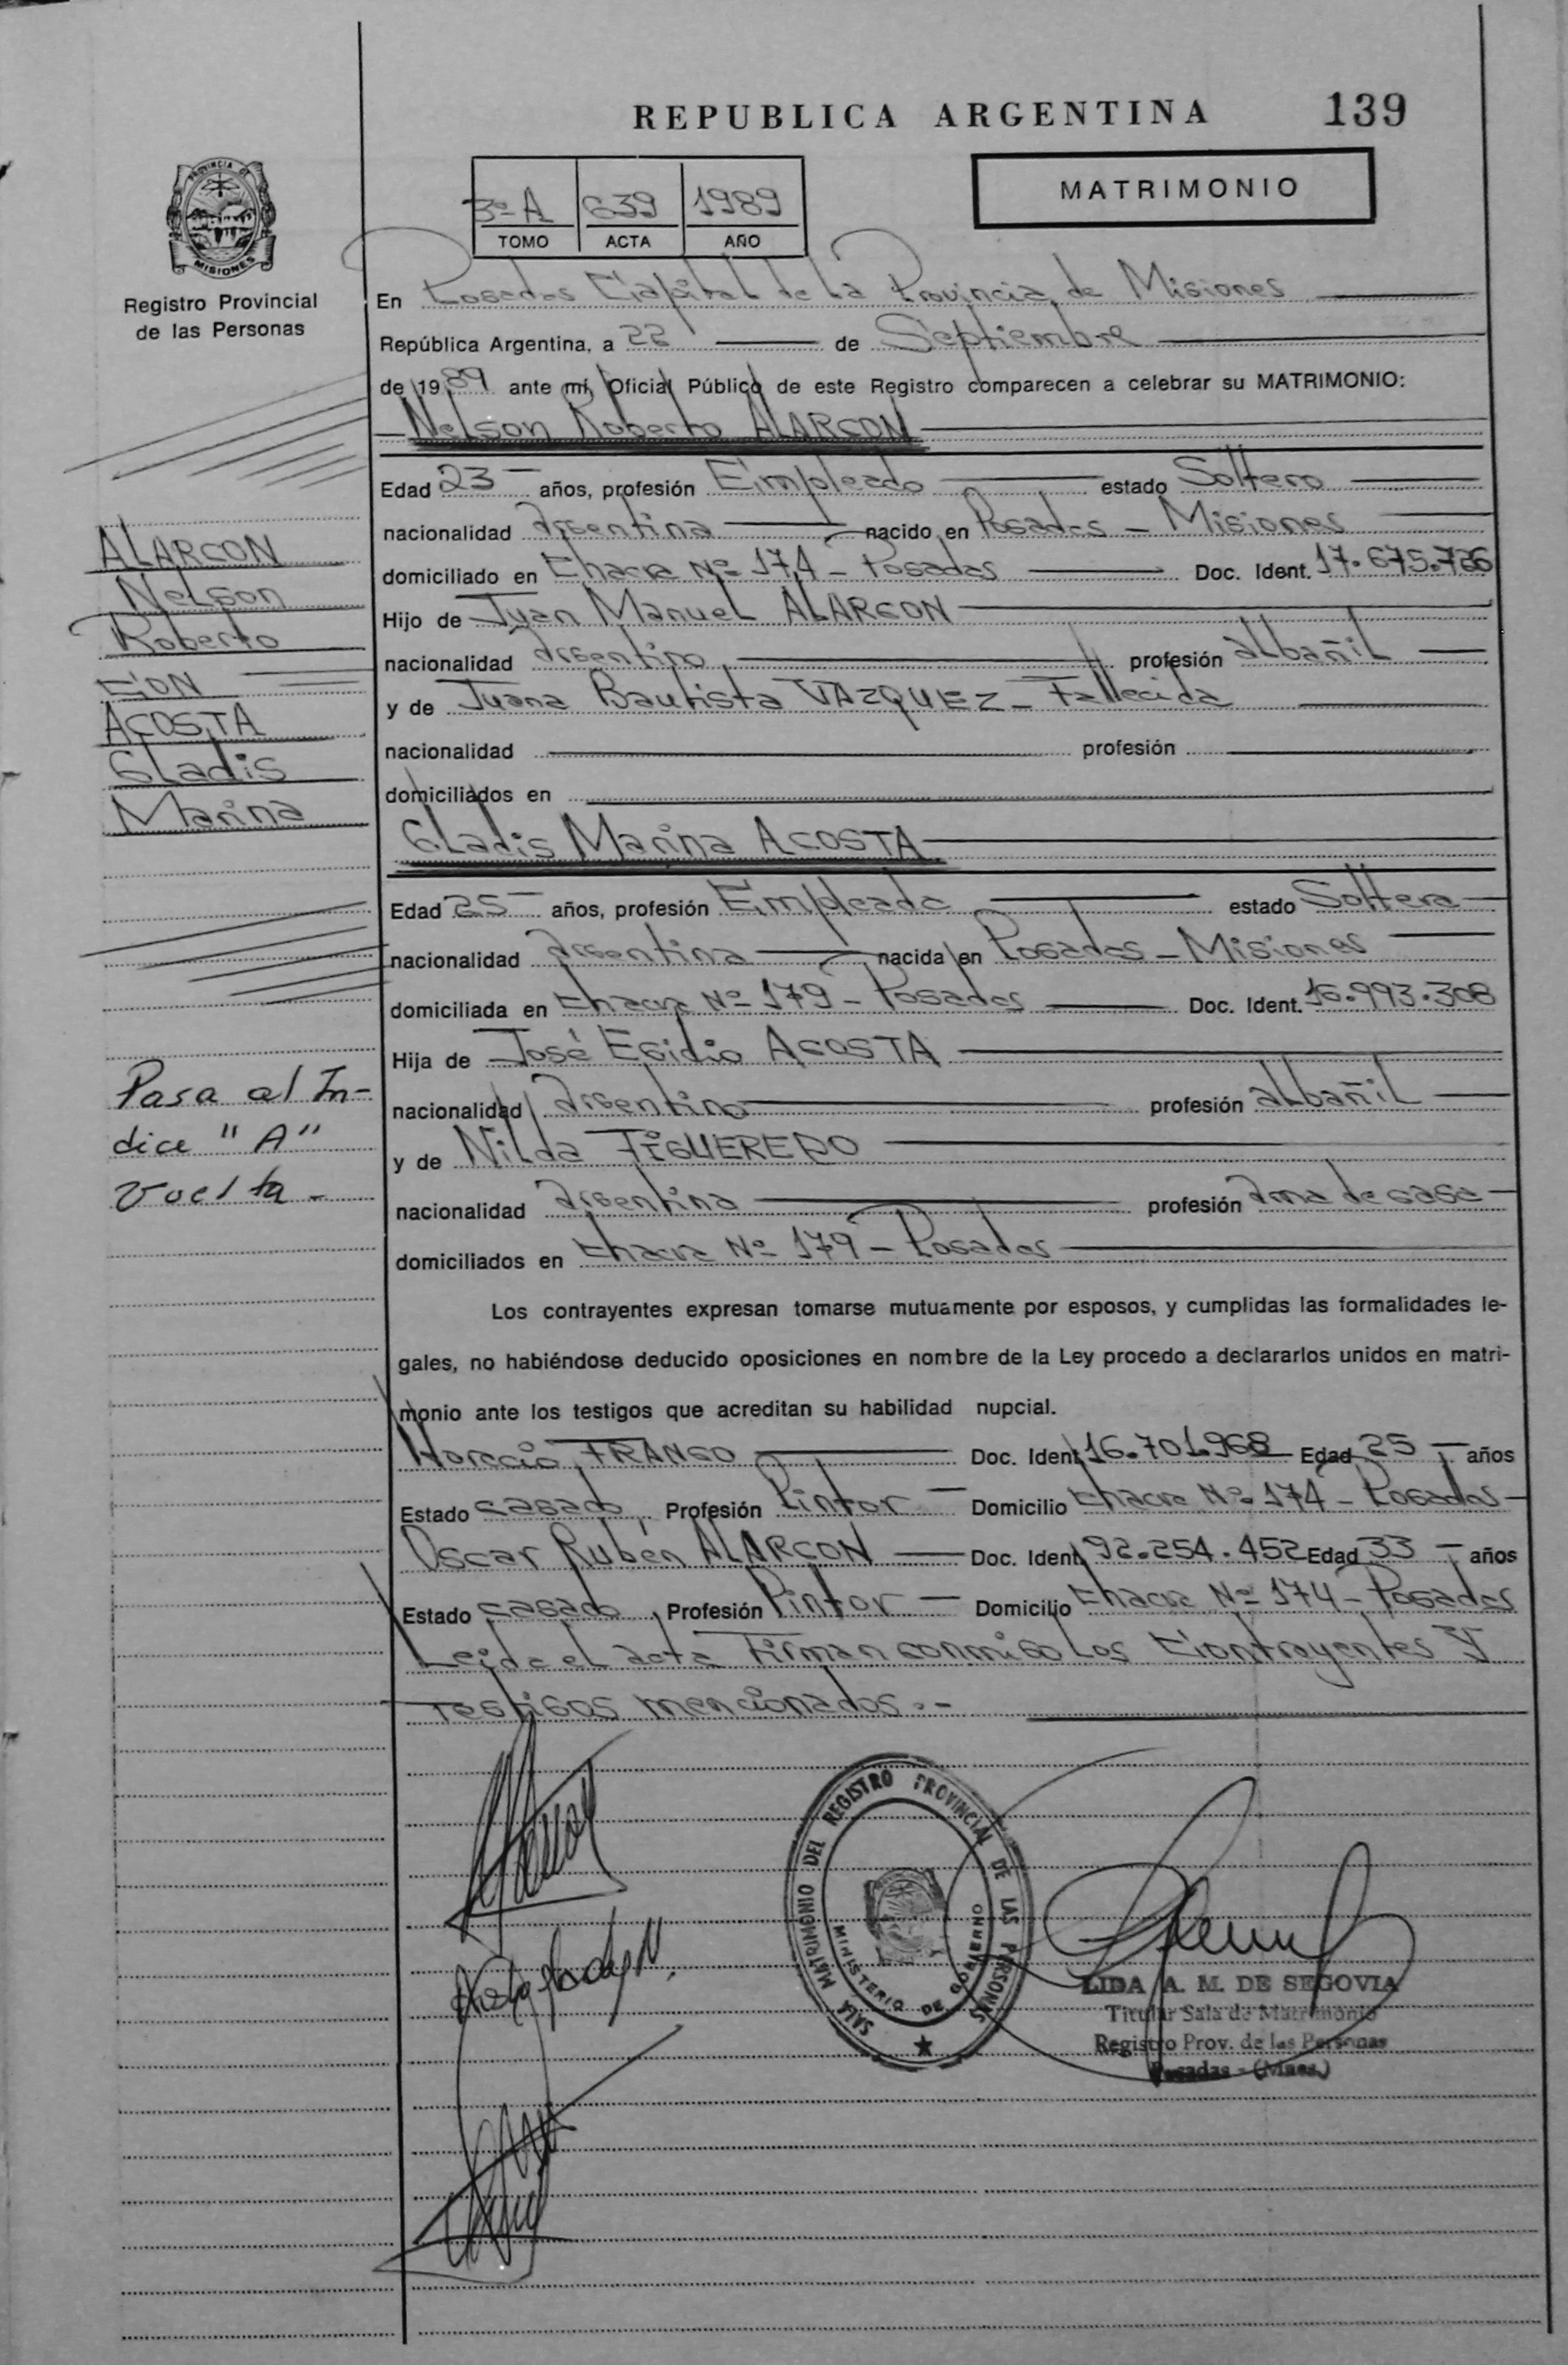 REPUBLICA ARGENTINA 139
PROVINCIA DE MISIONES
Registro Provincial
de las Personas
3º A 639 1989
TOMO ACTA AÑO
MATRIMONIO
En Posadas Capital de la Provincia de Misiones
República Argentina, a 22 de Septiembre
de 1989 ante mí, Oficial Público de este Registro comparecen a celebrar su MATRIMONIO:
Nelson Roberto ALARCON
Edad 23 años, profesión Empleado estado Soltero
nacionalidad Argentina nacido en Posadas - Misiones
domiciliado en Chacra Nº 174 - Posadas Doc. Ident. 17.675.736
Hijo de Juan Manuel ALARCON
nacionalidad Argentino profesión albañil
y de Juana Bautista VAZQUEZ - Fallecida
nacionalidad profesión
domiciliados en
Gladis Marina ACOSTA
Edad 25 años, profesión Empleada estado Soltera
nacionalidad Argentina nacida en Posadas - Misiones
domiciliada en Chacra Nº 179 - Posadas Doc. Ident. 16.993.308
Hija de José Egidio ACOSTA
nacionalidad Argentino profesión albañil
y de Nilda FIGUEREDO
nacionalidad Argentina profesión ama de casa
domiciliados en Chacra Nº 179 - Posadas
Los contrayentes expresan tomarse mutuamente por esposos, y cumplidas las formalidades le-
gales, no habiéndose deducido oposiciones en nombre de la Ley procedo a declararlos unidos en matri-
monio ante los testigos que acreditan su habilidad nupcial.
Horacio FRANCO Doc. Ident. 16.701.968 Edad 25 años
Estado casado Profesión Pintor Domicilio Chacra Nº 174 - Posadas
Oscar Rubén ALARCON Doc. Ident. 92.254.452 Edad 33 años
Estado casado, Profesión Pintor Domicilio Chacra Nº 174 - Posadas
Leida el acta Firman conmigo los Contrayentes y
Testigos mencionados.-
ALARCON
Nelson
Roberto
CON
ACOSTA
Gladis
Marina
Pasa al In-
dice "A"
Vuelta -
SALA MATRIMONIO DEL REGISTRO PROVINCIAL DE LAS PERSONAS
MINISTERIO DE GOBIERNO
LIDA A. M. DE SEGOVIA
Titular Sala de Matrimonio
Registro Prov. de las Personas
Posadas - (Mnes.)